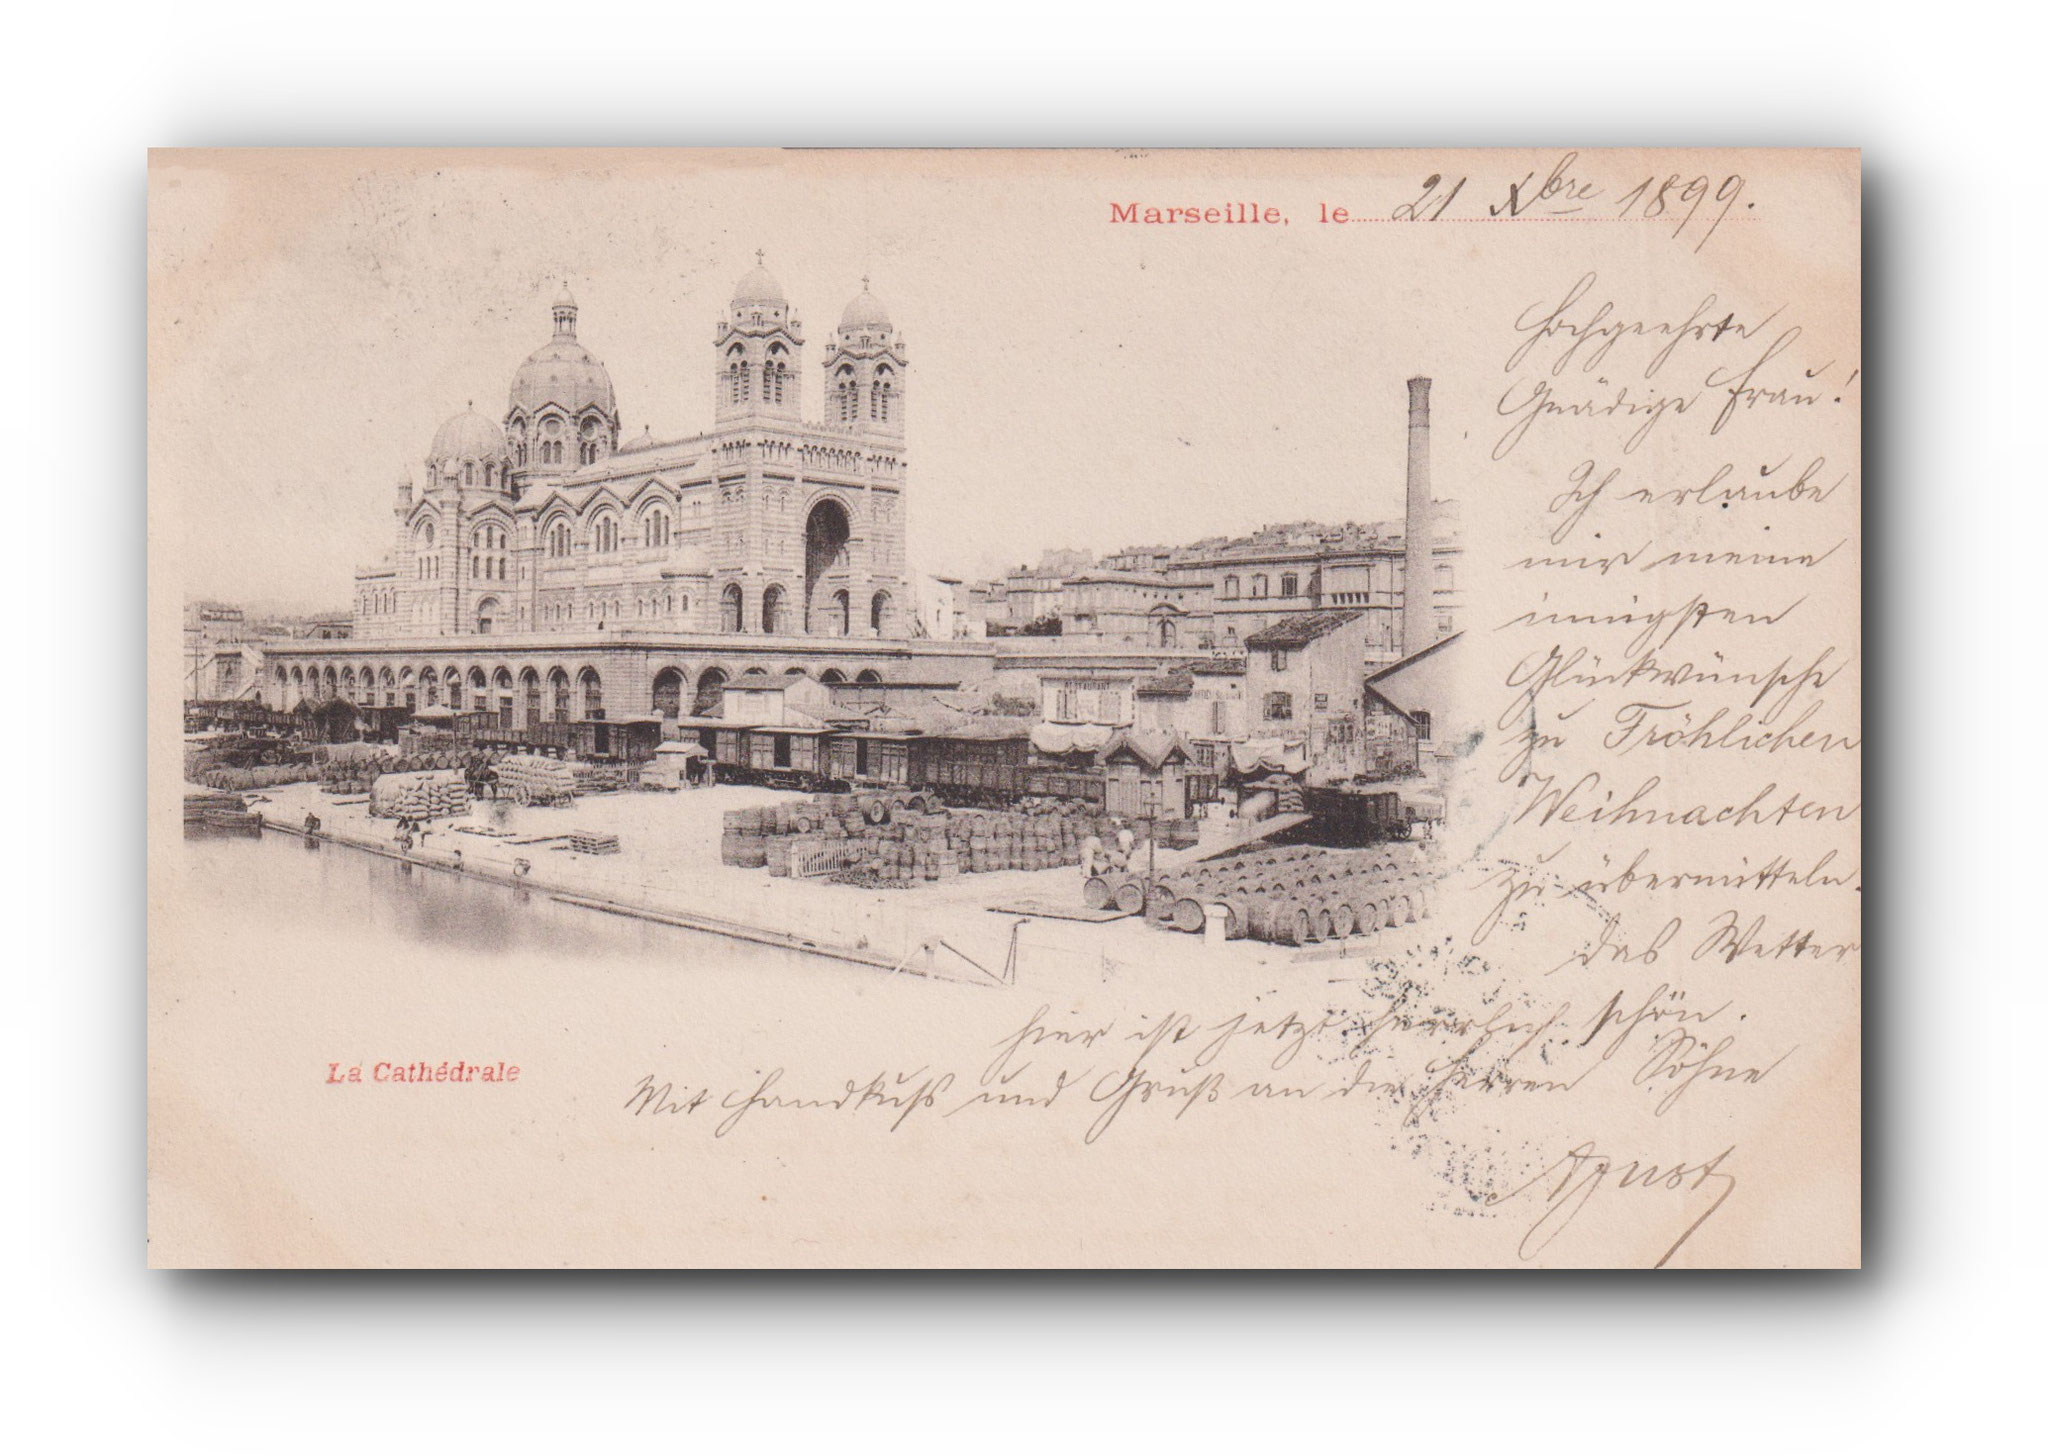 Marseille, le 21 Xbre 1899.
Hochgeehrte
Gnädige Frau!
Ich erlaube
mir meine
innigsten
Glückwünsche
zu Fröhlichen
Weihnachten
zu übermitteln.
das Wetter
hier ist jetzt herrlich schön.
Mit Handkuß und Gruß an die Herren Söhne
La Cathédrale
RESTAURANT